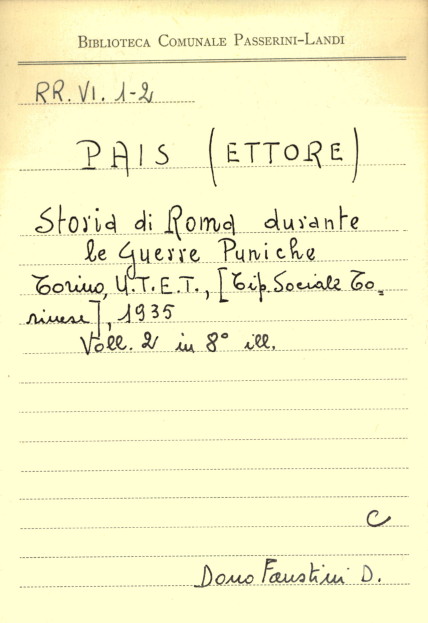 BIBLIOTECA COMUNALE PASSERINI-LANDI
RR. VI. 1-2
PAIS (ETTORE)
Storia di Roma durante
le Guerre Puniche
Torino, U.T.E.T., [Tip. Sociale To=
rinese], 1935
Voll. 2 in 8° ill.
C
Dono Faustini D.